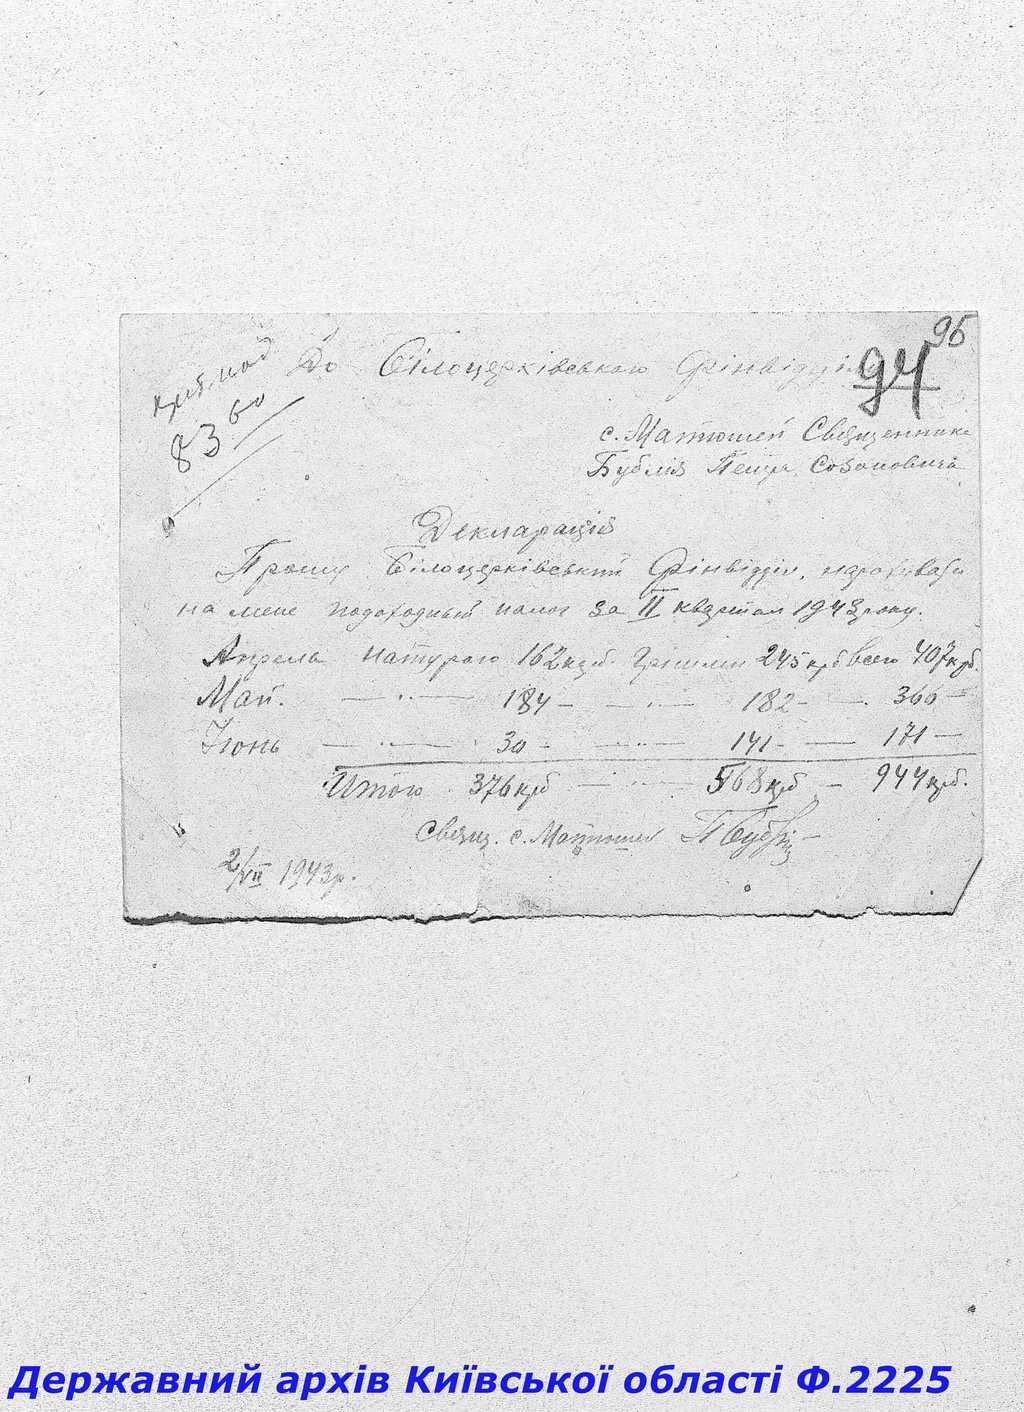 95
94
До Білоцерківського Фінвідділу
83 60
с. Матюшей Священника
Бублія Петра Созоновича
Декларація
Прошу Білоцерківський Фінвідділ, нарахувати
на мене подоходный налог за II квартал 1943 року.
Апрель натурою 162 крб. грішми 245 крб всего 407 крб.
Май. — " — 184 — — " — 182 — — 366 —
Июнь — " — 30 — — " — 141 — — 171 —
Итого 376 крб — " — 568 крб — 944 крб.
Свящ. с. Матюшей П Бублій
2/VII 1943 р.
Державний архів Київської області Ф.2225